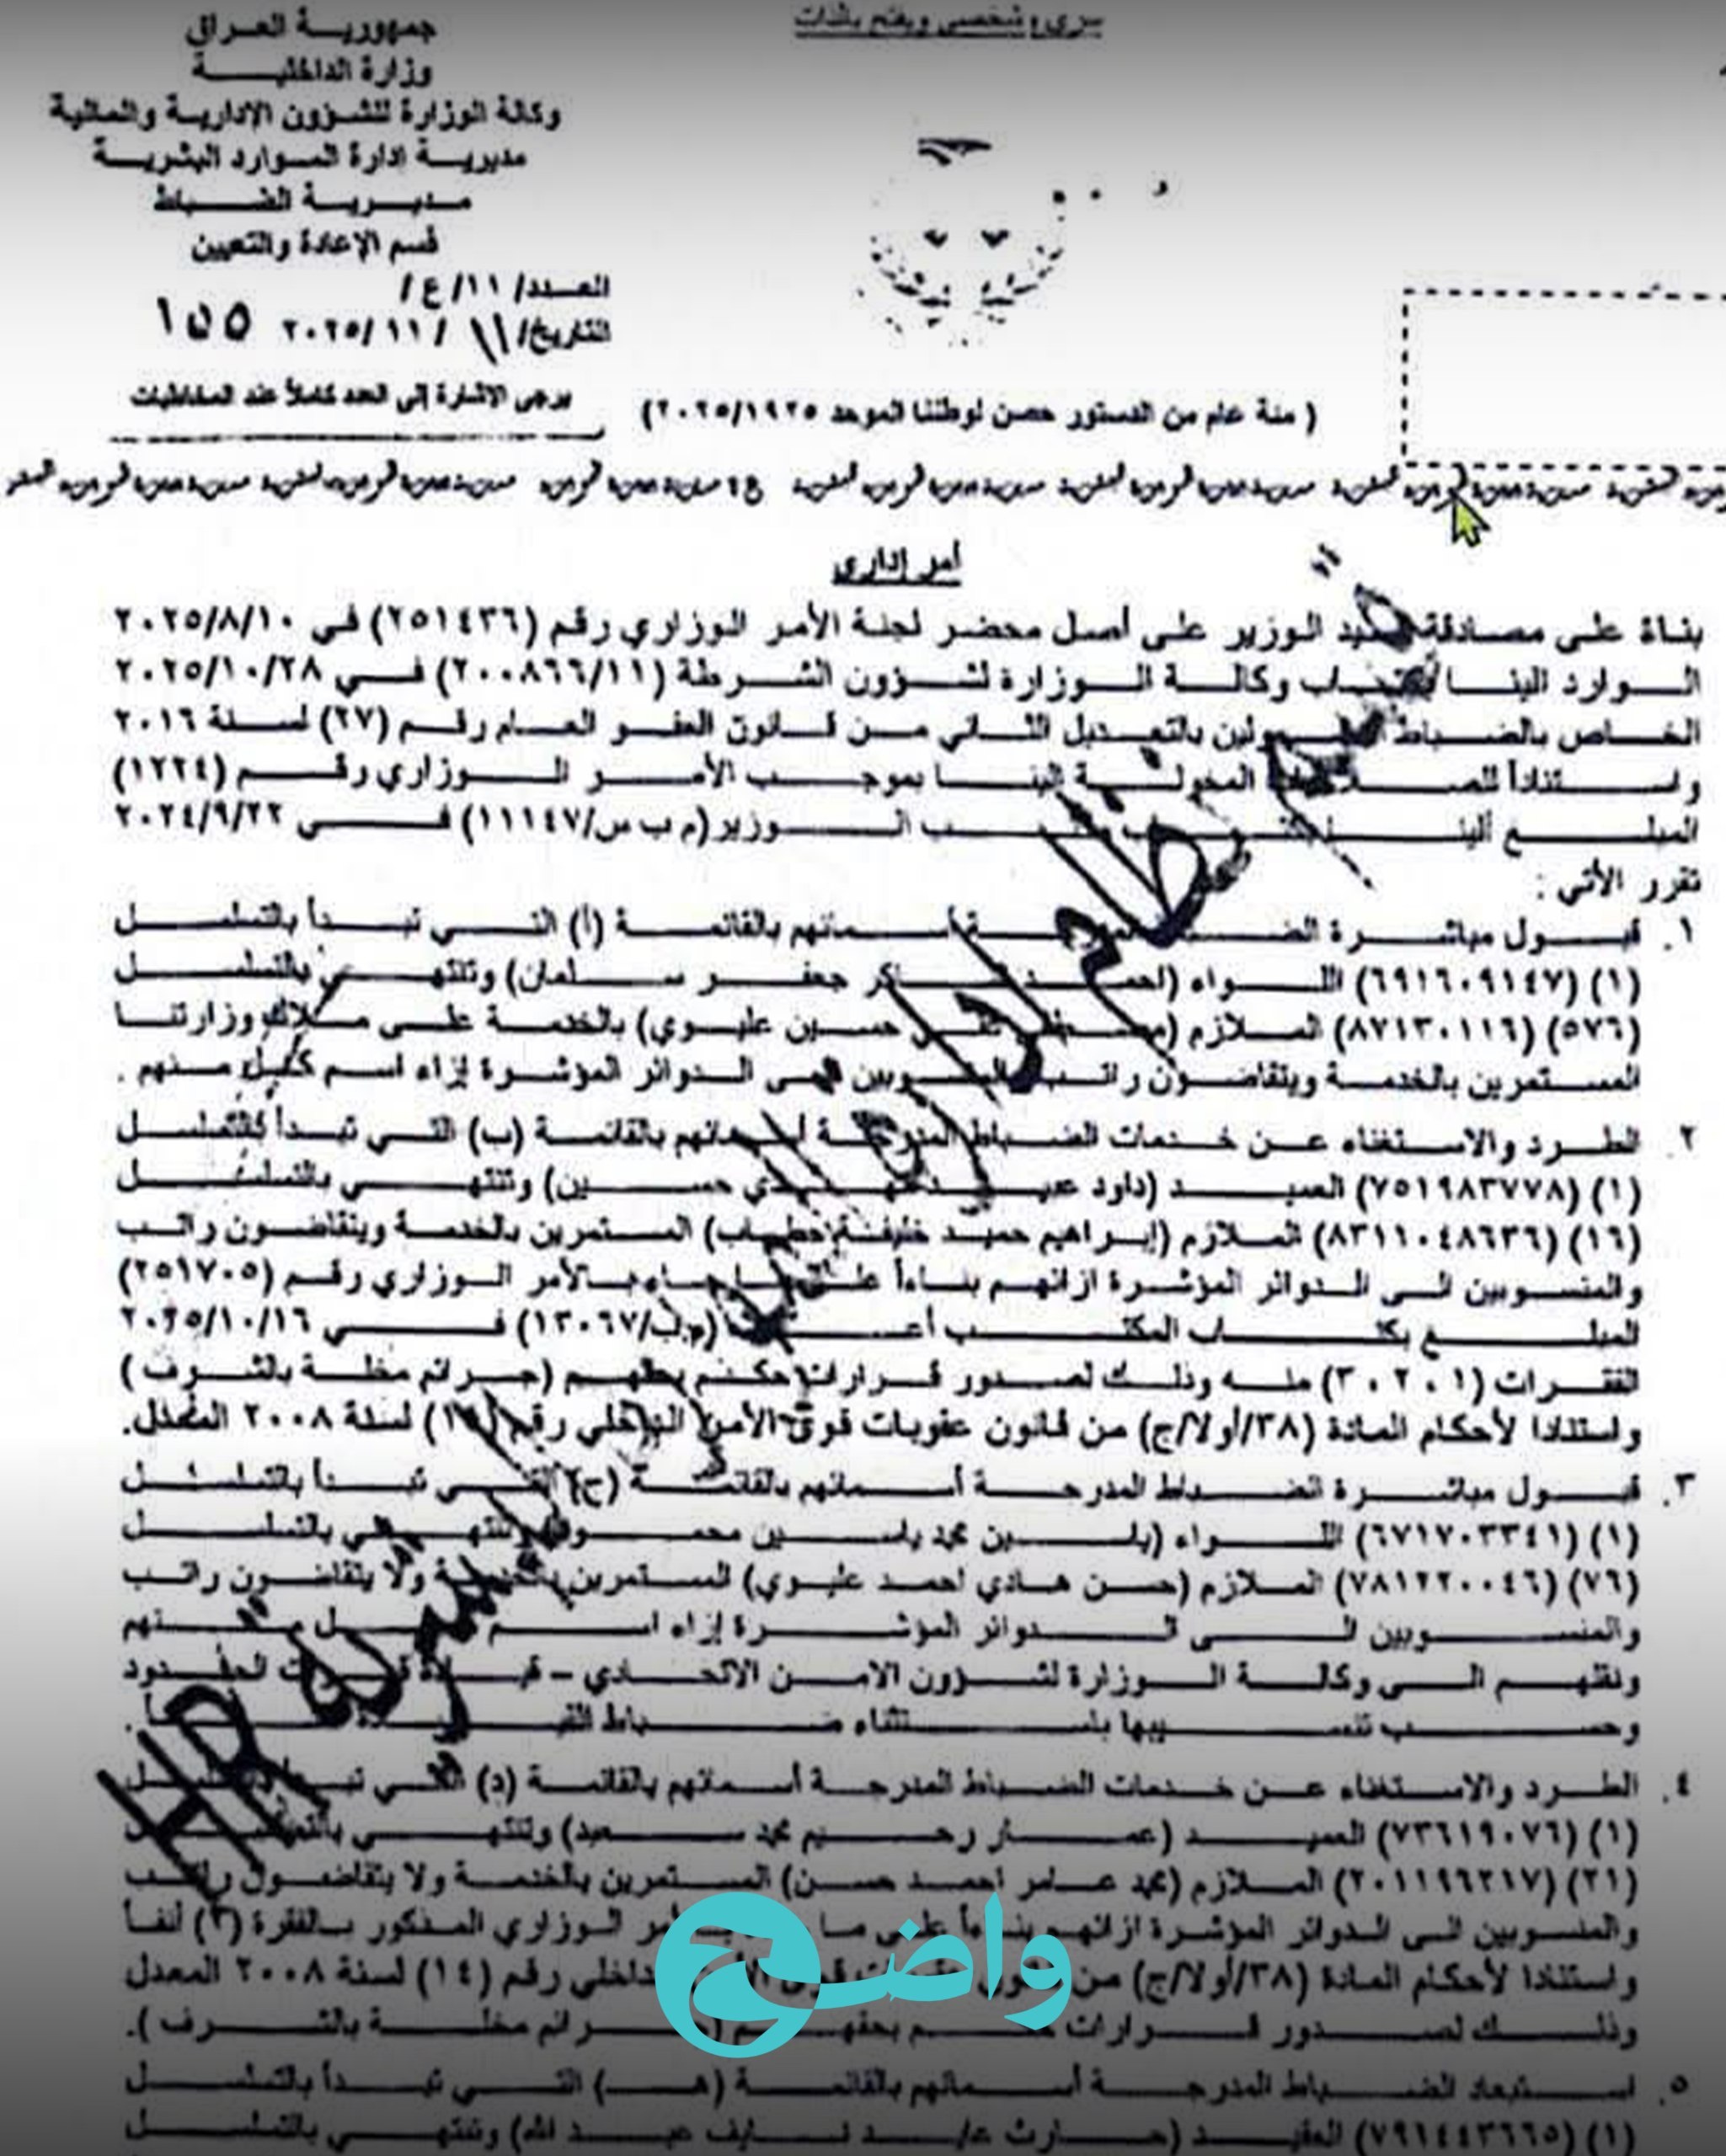 سري وشخصي ويفتح بالذات
جمهوريـة العـراق
وزارة الداخليـــة
وكالة الوزارة للشؤون الإدارية والمالية
مديرية إدارة الموارد البشرية
مديرية الضباط
قسم الإعادة والتعيين
العدد/ ١١/ ع /
التاريخ/ ١١ / ١١ /٢٠٢٥ ١٥٥
يرجى الاشارة إلى العدد كاملاً عند المخاطبات
( مئة عام من الدستور حصن لوطننا الموحد ١٩٢٥/٢٠٢٥)
أمر إداري
بناءً على مصادقة السيد الوزير على أصل محضر لجنة الأمر الوزاري رقم (٢٥١٤٣٦) في ٢٠٢٥/٨/١٠
الوارد الينا بكتاب وكالة الوزارة لشؤون الشرطة (٢٠٠٨٦٦/١١) في ٢٠٢٥/١٠/٢٨
الخاص بالضباط المشمولين بالتعديل الثاني من قانون العفو العام رقم (٢٧) لسنة ٢٠١٦
واستناداً للصلاحيات المخولة الينا بموجب الأمر الوزاري رقم (١٢٢٤)
المبلغ ألينا بكتاب مكتب الوزير (م ب س/١١١٤٧) في ٢٠٢٤/٩/٢٢
تقرر الأتي :
١. قبول مباشرة الضباط المدرجة أسمائهم بالقائمة (أ) التي تبدأ بالتسلسل
(١) (٦٩١٦٠٩١٤٧) اللواء (احمد شاكر جعفر سلمان) وتنتهي بالتسلسل
(٥٧٦) (٨٧١٣٠١١٦) الملازم حسين عليوي) بالخدمة على ملاك وزارتنا
المستمرين بالخدمة ويتقاضون راتب المنسوبين الى الدوائر المؤشرة إزاء اسم كل منهم .
٢. الطرد والاستغناء عن خدمات الضباط المدرجة أسمائهم بالقائمة (ب) التي تبدأ بالتسلسل
(١) (٧٥١٩٨٣٧٧٨) العميد (داود عبد حسين) وتنتهي بالتسلسل
(١٦) (٨٣١١٠٤٨٦٣٦) الملازم (إبراهيم حميد خليفة حطاب) المستمرين بالخدمة ويتقاضون راتب
والمنسوبين الى الدوائر المؤشرة ازائهم بناءاً على ما جاء بالأمر الوزاري رقم (٢٥١٧٠٥)
المبلغ بكتاب المكتب أعلاه (م.ب/١٣٠٦٧) في ٢٠٢٥/١٠/١٦
الفقرات (٣،٢،١) منه وذلك لصدور قرارات حكم بحقهم (جرائم مخلة بالشرف )
واستنادا لأحكام المادة (٣٨/أولا/ج) من قانون عقوبات قوى الأمن الداخلي رقم (١٤) لسنة ٢٠٠٨ المعدل.
٣. قبول مباشرة الضباط المدرجة أسمائهم بالقائمة (ج) التي تبدأ بالتسلسل
(١) (٦٧١٧٠٣٣٤١) اللواء (ياسين محمد ياسين وتنتهي بالتسلسل
(٧٦) (٧٨١٢٢٠٠٤٦) الملازم (حسن هادي احمد عليوي) المستمرين بالخدمة ولا يتقاضون راتب
والمنسوبين الى الدوائر المؤشرة إزاء اسم كل منهم
ونقلهم الى وكالة الوزارة لشؤون الامن الاتحادي – قيادة قوات الحدود
وحسب تنسيبها باستثناء ضباط القيادة
٤. الطرد والاستغناء عن خدمات الضباط المدرجة أسمائهم بالقائمة (د) التي تبدأ بالتسلسل
(١) (٧٣٦١٩٠٧٦) العميد (عمار رحيم محمد سعيد) وتنتهي بالتسلسل
(٢١) (٢٠١١٩٦٢١٧) الملازم (محمد عامر احمد حسن) المستمرين بالخدمة ولا يتقاضون راتب
والمنسوبين الى الدوائر المؤشرة ازائهم بناءاً على ما جاء بالأمر الوزاري المذكور بالفقرة (٢) أنفاً
واستنادا لأحكام المادة (٣٨/أولا/ج) من قانون عقوبات قوى الأمن الداخلي رقم (١٤) لسنة ٢٠٠٨ المعدل
وذلك لصدور قرارات حكم بحقهم (جرائم مخلة بالشرف ).
٥. استبعاد الضباط المدرجة أسمائهم بالقائمة (هـ) التي تبدأ بالتسلسل
(١) (٧٩٦٤٤٣٦٦٥) العقيد (حارث عايد نايف عبد الله) وتنتهي بالتسلسل
HR
واضح